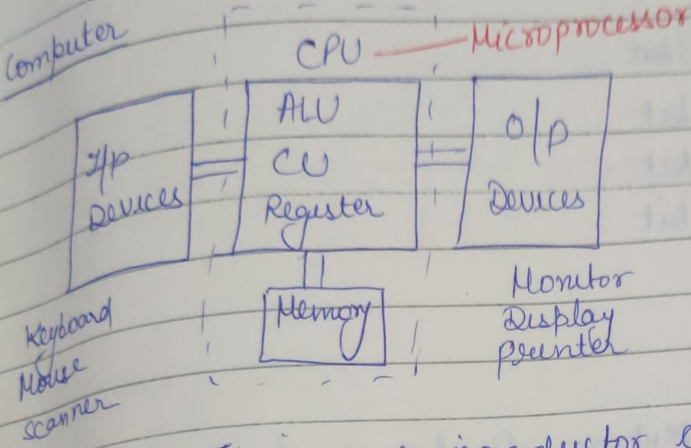 Computer
CPU Microprocessor
I/P
Devices
ALU
CU
Register
O/P
Devices
Memory
Keyboard
Mouse
Scanner
Monitor
Display
Printer